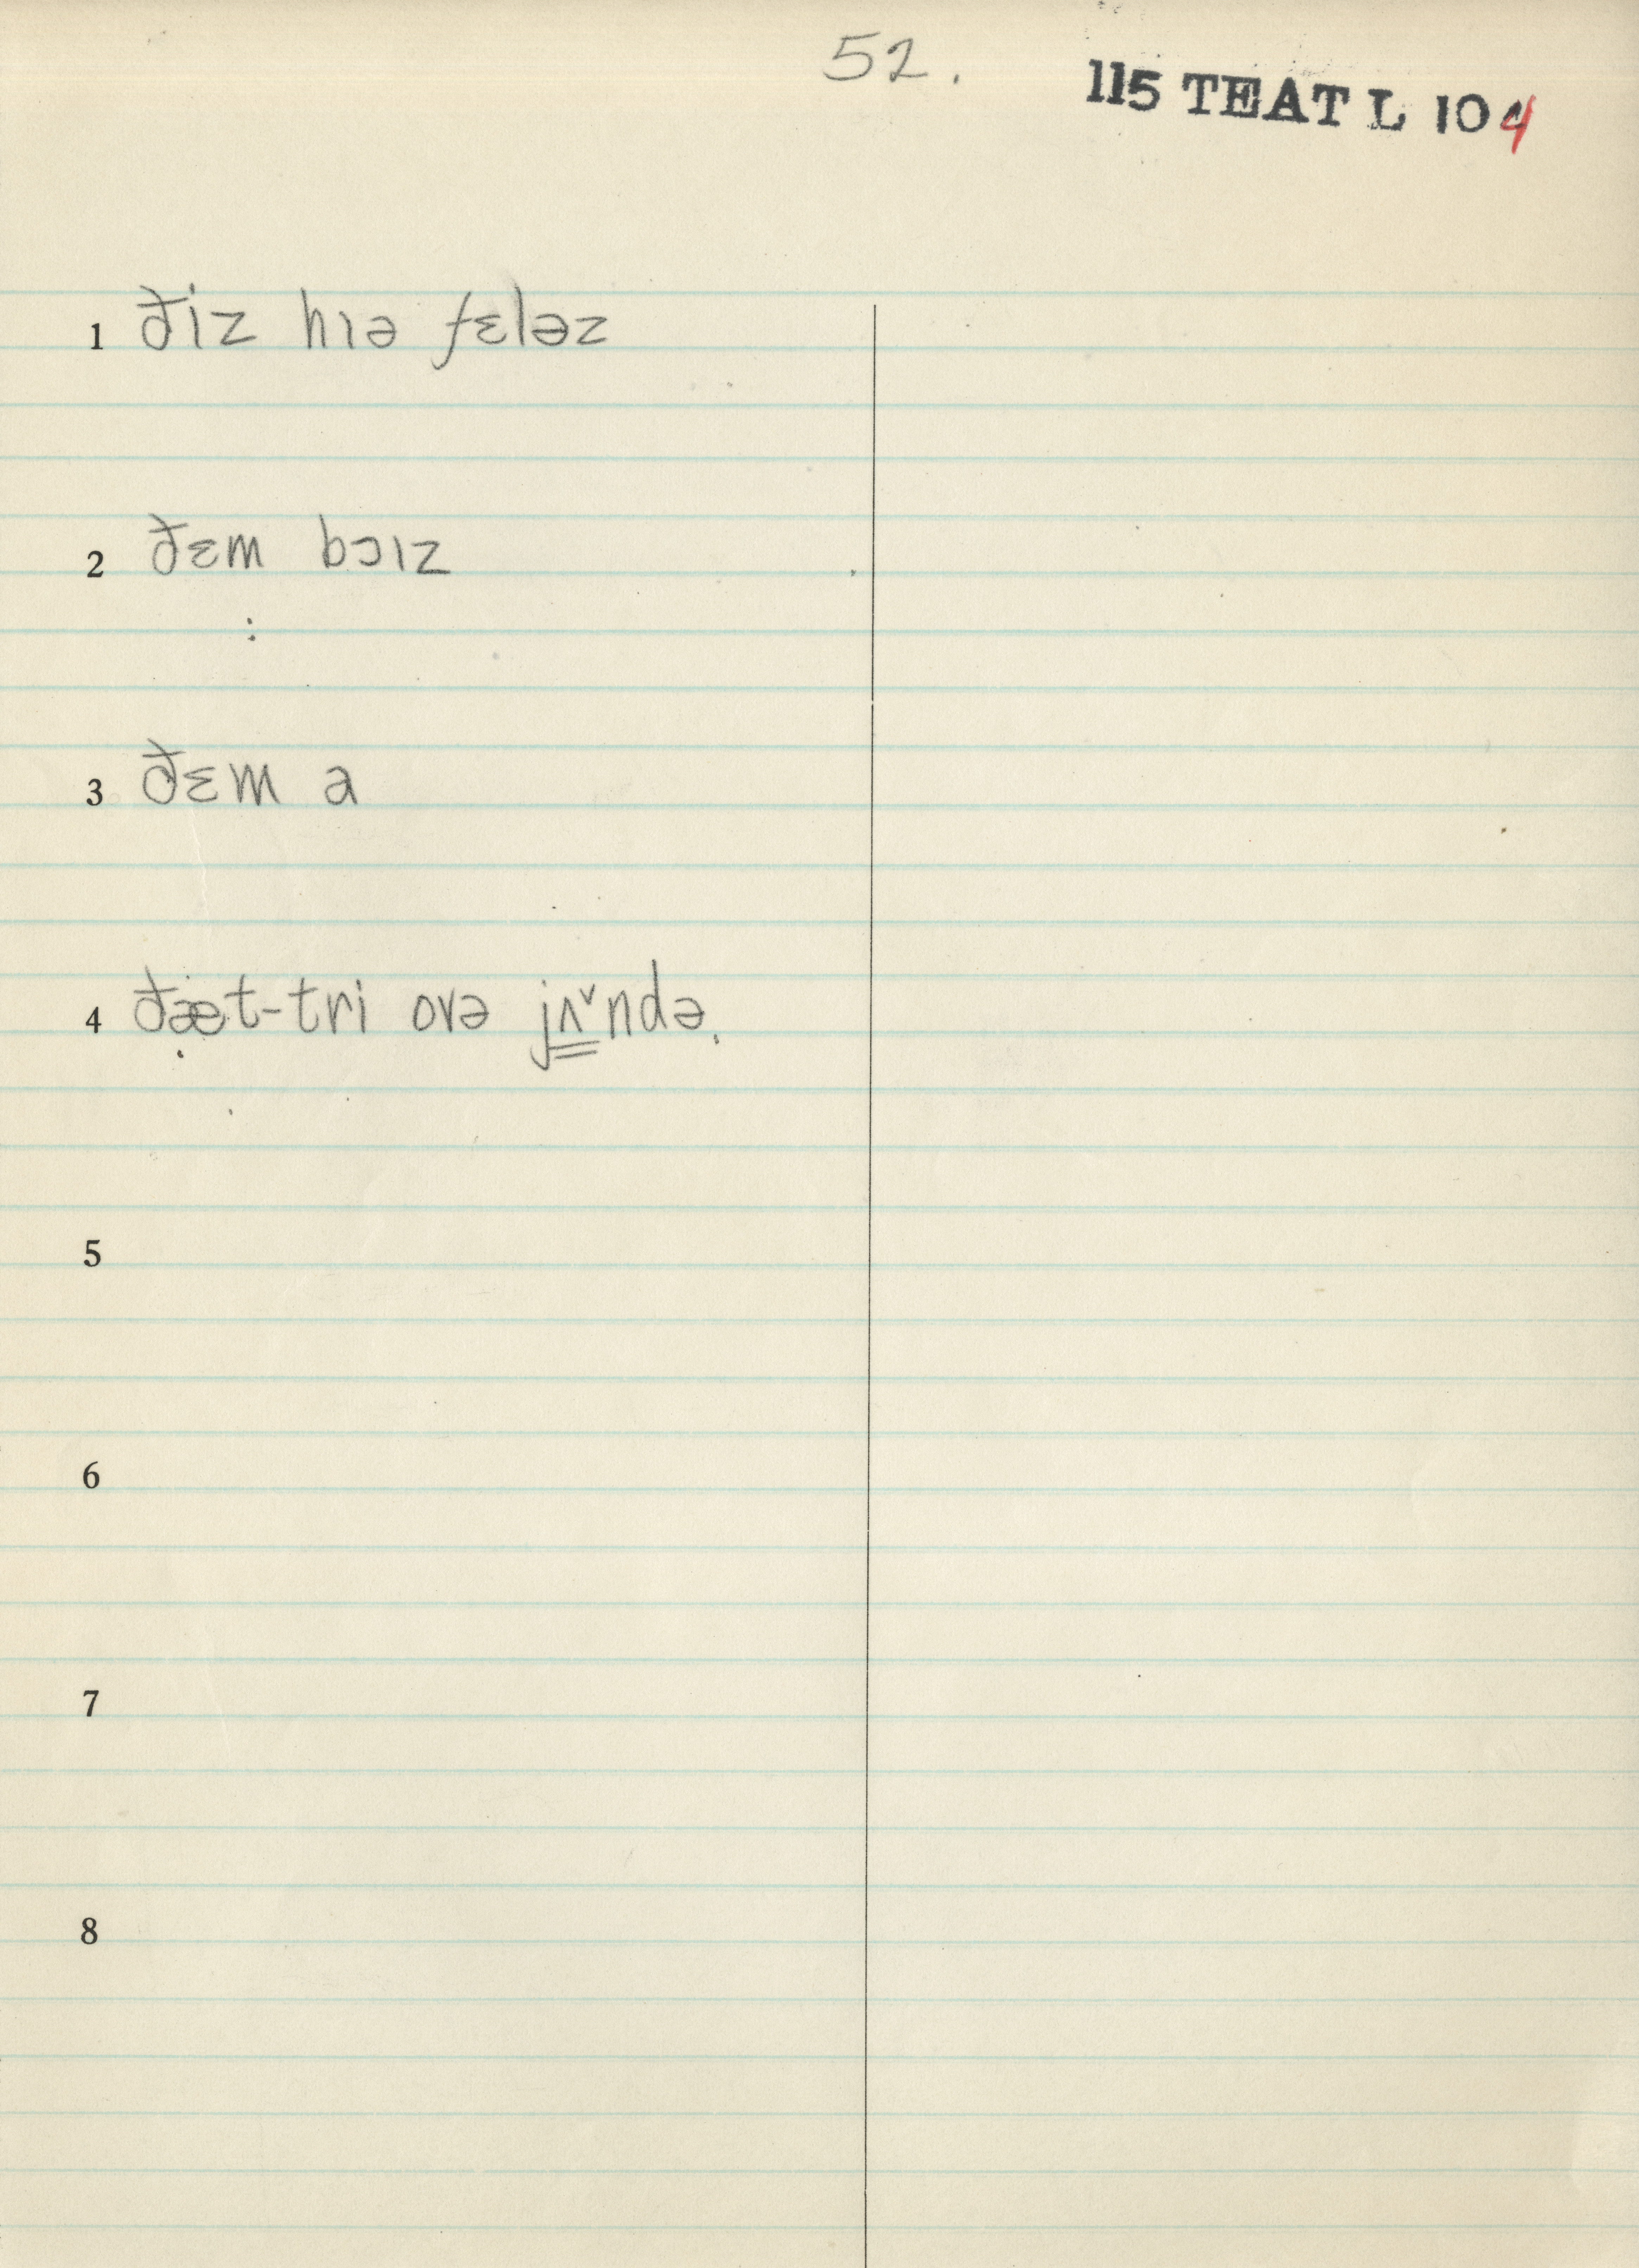 52.
115 TEAT L 104
1 ðiz hɪə fɛləz
2 ðɛm bɔɪz
3 ðɛm a
4 ðæt-tri ovə jʌ̳ˇndə.
5
6
7
8